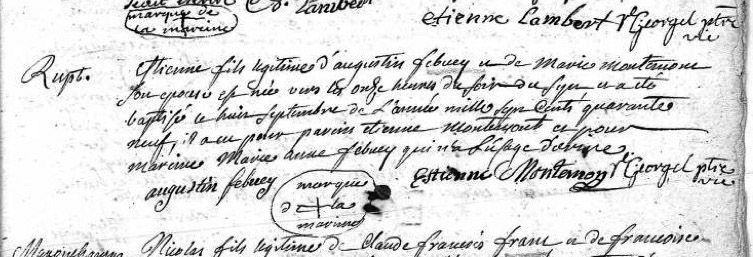 marque de
la marine
Etienne Lambert J Georgel ptre
vic
Rupt. Etienne fils legitime d'augustin febvey et de Marie montemont
son epouse est née vers les onze heures du soir du sept et a été
baptisé le huit Septembre de L'année mille sept cents quarante
neuf, il a eu pour parein etienne montemont et pour
mareine Marie anne febvey qui n'a l'usage d'ecrire
augustin febvey marque Estienne Montemon J Georgel ptre
de la vic
mareine
Nicolas fils legitime de Claude francois franc et de francoise